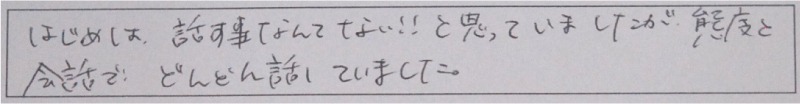 はじめは、話す事なんてない!!と思っていましたが、態度と
会話で、どんどん話していました。